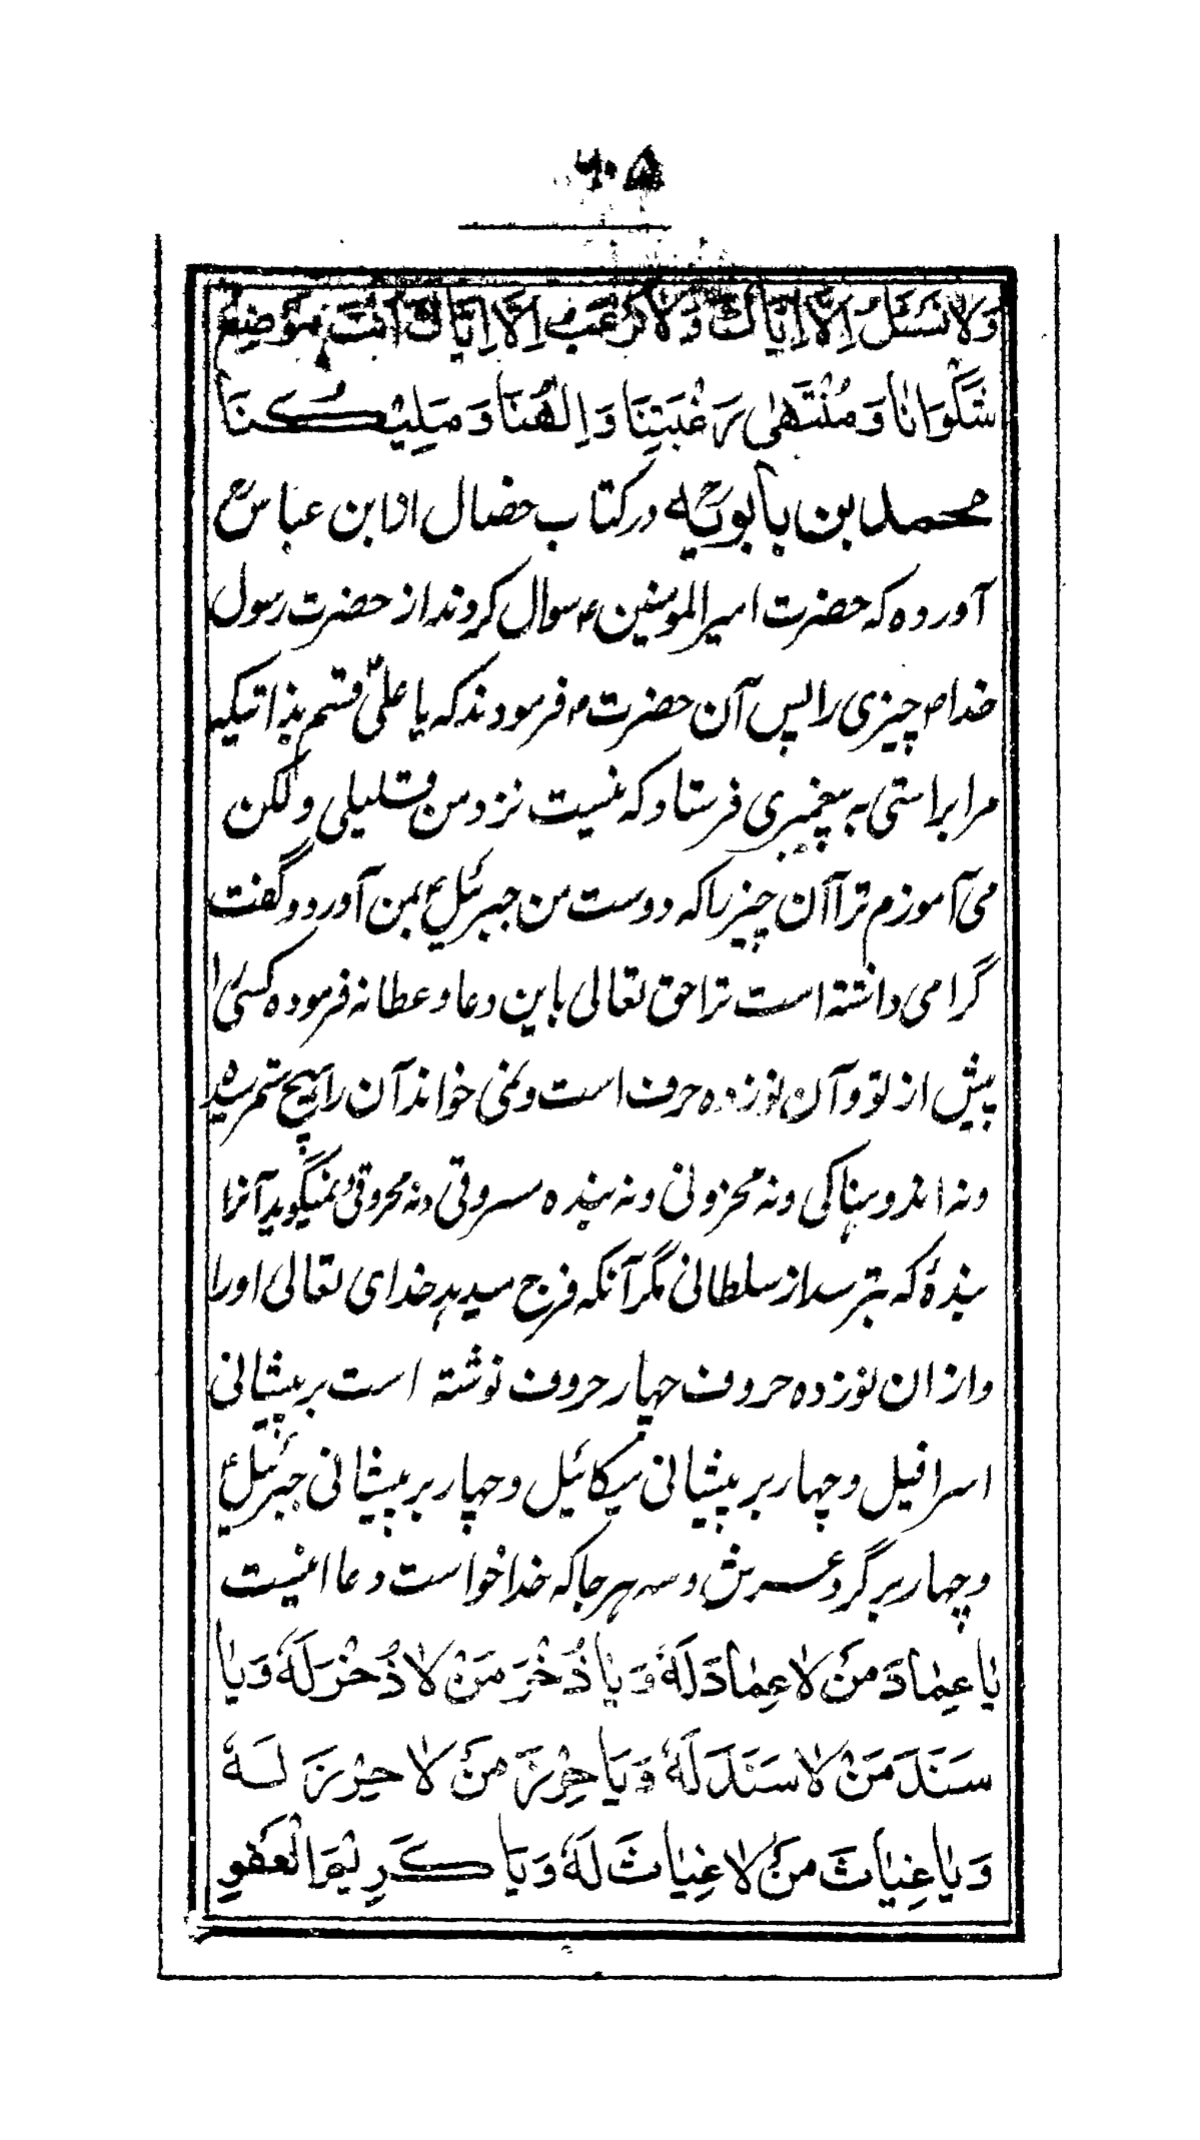 ۶۰۵
وَلَا نَسْئَلُ اِلَّا اِيَّاكَ وَلَا نَرْغَبُ اِلَّا اِيَّاكَ اَنْتَ مَوْضِعُ
شَكْوَانَا وَمُنْتَهٰى رَغْبَتِنَا وَاِلٰهُنَا وَمَلِيْكُنَا
محمد بن بابویهؒ در کتاب خصال از ابن عباسؓ
آورده که حضرت امیرالمومنینؑ سوال کردند از حضرت رسول
خداؐ چیزی را پس آن حضرتؐ فرمودند که یا علیؑ قسم بذاتیکه
مرا براستی به پیغمبری فرستاد که نیست نزد من قلیلی ولکن
می آموزم ترا آن چیز را که دوست من جبرئیلؑ بمن آورد و گفت
گرامی داشته است ترا حق تعالی باین دعا و عطا نه فرموده کسی را
پیش از تو و آن نوزده حرف است و نمی خواند آن را هیچ ستمرسیده
ونه اندوهناکی ونه محزونی ونه بنده مسروقی ونه محروقی و نمیگوید آنرا
بندهٔ که بترسد از سلطانی مگر آنکه فرج میدهد خدای تعالی اورا
واز ان نوزده حروف چهار حروف نوشته است بر پیشانی
اسرافیل وچهار بر پیشانی میکائیل وچهار بر پیشانی جبرئیلؑ
وچهار بر گرد عرش وسه هر جا که خدا خواست دعا اینست
يَا عِمَادَ مَنْ لَا عِمَادَ لَهٗ وَيَا ذُخْرَ مَنْ لَا ذُخْرَ لَهٗ وَيَا
سَنَدَ مَنْ لَا سَنَدَ لَهٗ وَيَا حِرْزَ مَنْ لَا حِرْزَ لَهٗ
وَيَا غِيَاثَ مَنْ لَا غِيَاثَ لَهٗ وَيَا كَرِيْمَ الْعَفْوِ